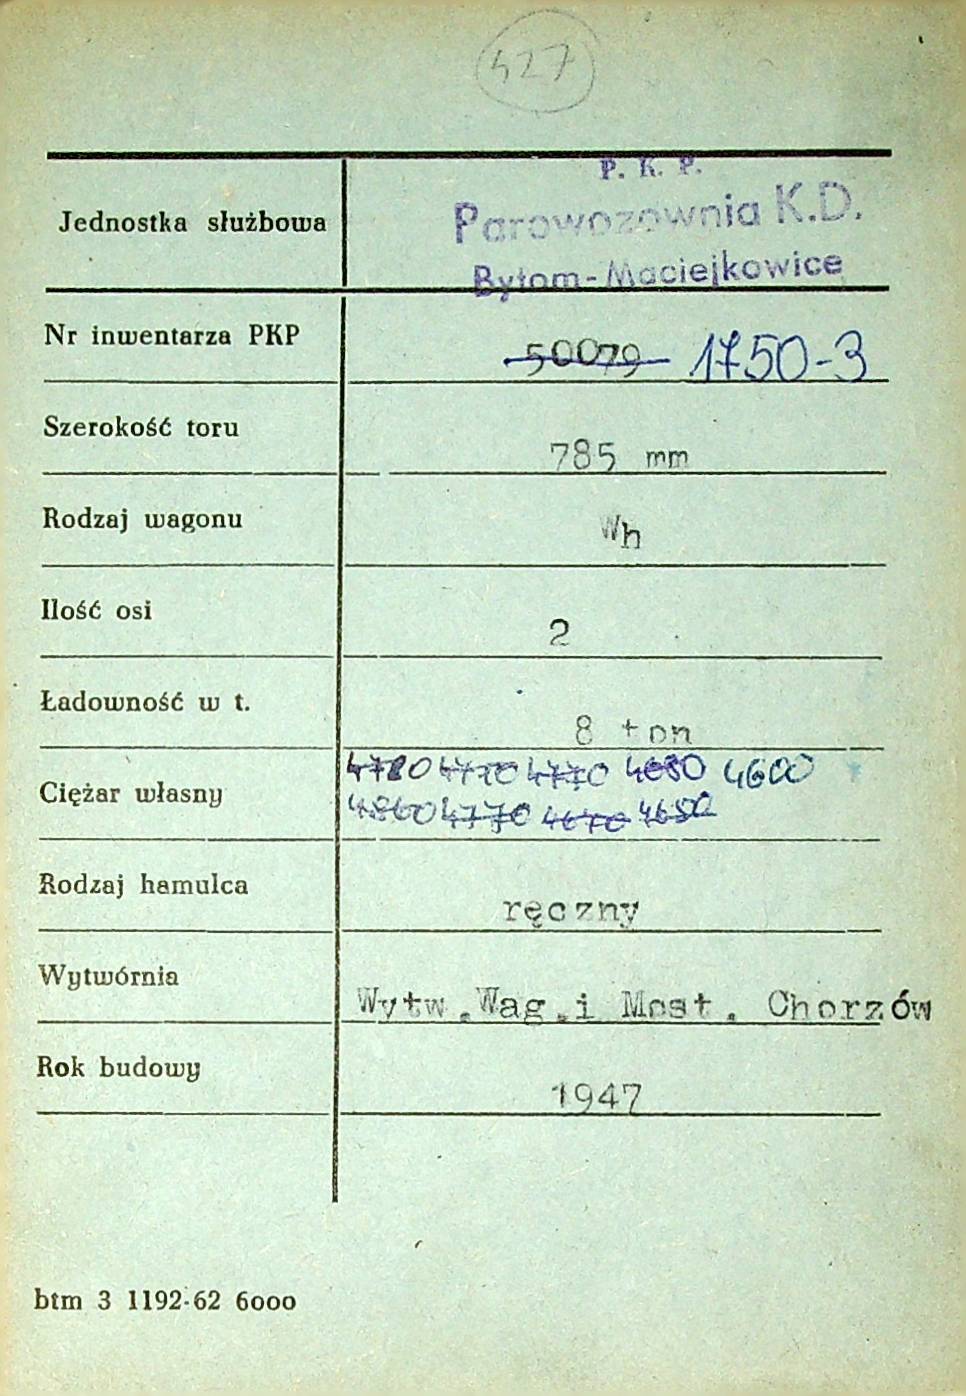 427
P. K. P.
Jednostka służbowa Parowozownia K.D.
Bytom-Maciejkowice
Nr inwentarza PKP 50079 1750-3
Szerokość toru 785 mm
Rodzaj wagonu Wh
Ilość osi 2
Ładowność w t. 8 ton
4720 4770 4770 4680 4600
Ciężar własny 4860 4770 4670 4650
Rodzaj hamulca ręczny
Wytwórnia Wytw.Wag.i Most. Chorzów
Rok budowy 1947
btm 3 1192-62 6000